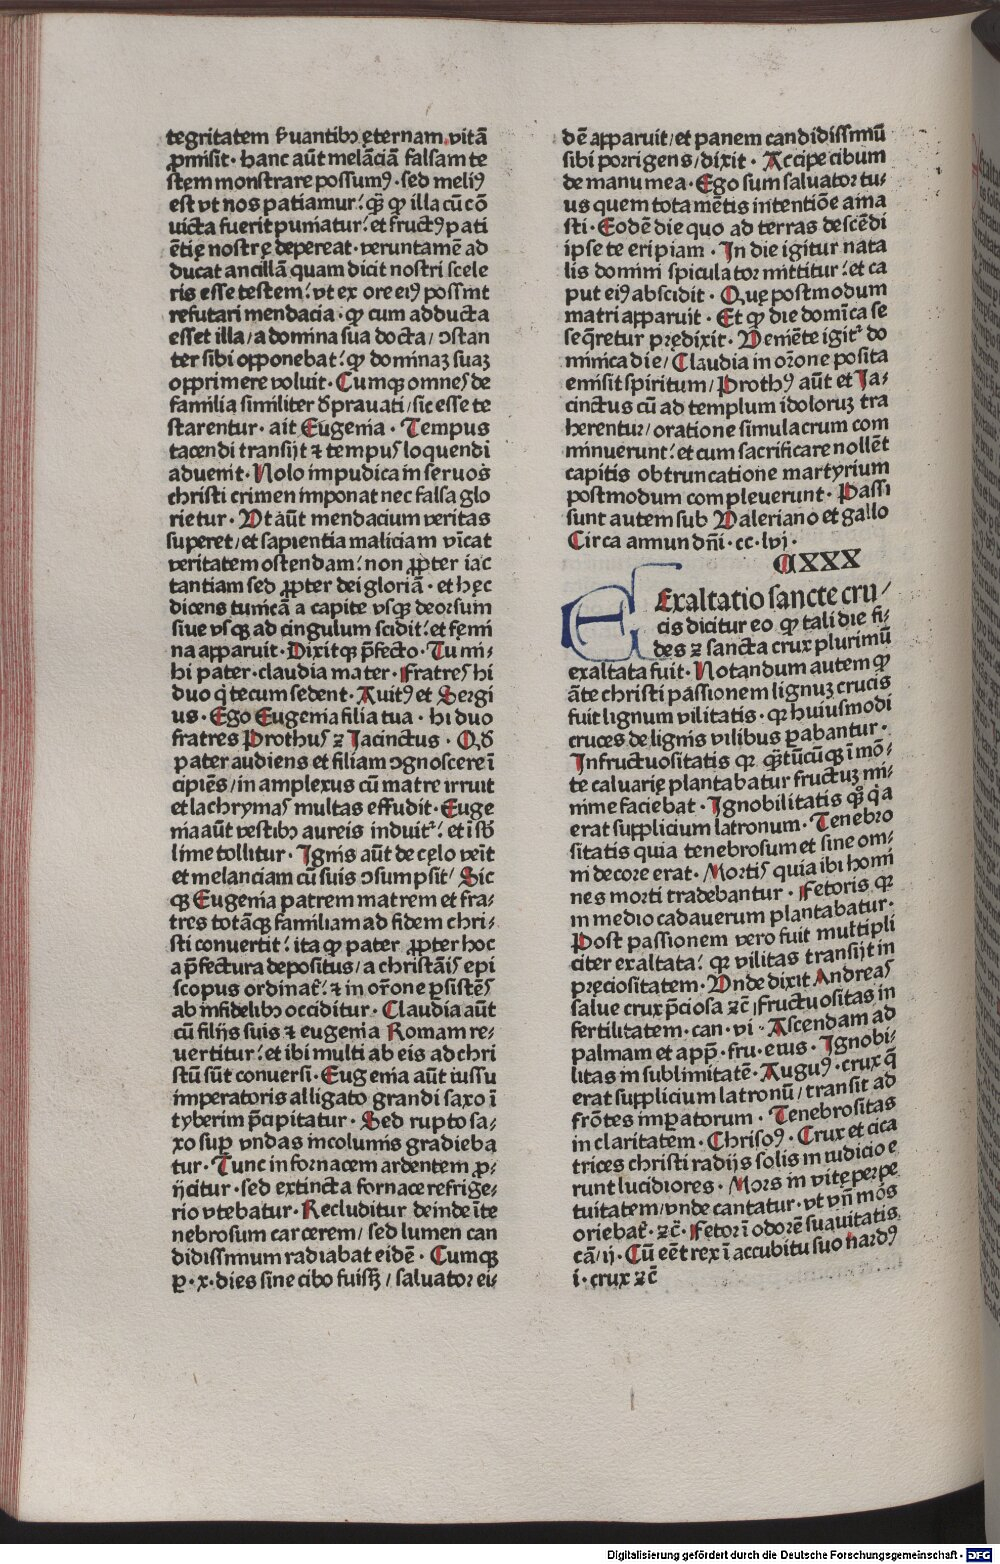 tegritatem ẜuantibꝫ ęternam vitā
ꝓmisit · hanc aūt melāciā falsam te
stem monstrare possumꝰ · sed meliꝰ
est vt nos patiamur / qꝫ̄ ꝙ illa cū cō
uicta fuerit puniatur / et fructꝰ pati
ētię nostrę depereat · veruntamē ad
ducat ancillā quam dicit nostri scele
ris esse testem / vt ex ore eiꝰ possint
refutari mendacia · ꝙ cum adducta
esset illa / a domina sua docta / ↄstan
ter sibi opponebat / ꝙ dominaꝫ suaꝫ
opprimere voluit · Cumqꝫ omnes de
familia similiter dꝑrauati / sic esse te
starentur · ait Eugenia · Tempus
tacendi transijt ⁊ tempus loquendi
aduenit · Nolo impudica in seruos
christi crimen imponat nec falsa glo
rietur · Vt aūt mendacium veritas
superet / et sapientia maliciam vīcat
veritatem ostendam / non ꝓpter iac
tantiam sed ꝓpter dei gloriā · et hęc
dicens tunicā a capite vsqꝫ deorsum
siue vsqꝫ ad cingulum scidit / et fęmi
na apparuit · Dixitqꝫ p̄fecto · Tu mi⸗
hi pater · claudia mater · fratres hi
duo q̇ tecum sedent · Auitꝰ et Sergi
us · Ego Eugenia filia tua · hi duo
fratres Prothus ⁊ Jacinctus · Qd̄
pater audiens et filiam ↄgnoscere ī
cipiēs / in amplexus cū matre irruit
et lachrymas multas effudit · Euge
nia aūt vestibꝫ aureis induit᷑ / et ī sb̄
lime tollitur · Ignis aūt de cęlo veīt
et melanciam cū suis ↄsumpsit / Sic
qꝫ Eugenia patrem matrem et fra⸗
tres totāqꝫ familiam ad fidem chri⸗
sti conuertit / ita ꝙ pater ꝓpter hoc
a p̄fectura depositus / a christāis epi
scopus ordinat᷑ / ⁊ in or̄one ꝑsistēs
ab infidelibꝫ occiditur · Claudia aūt
cū filijs suis ⁊ eugenia Romam re⸗
uertitur / et ibi multi ab eis ad chri
stū sūt conuersi · Eugenia aūt iussu
imperatoris alligato grandi saxo ī
tyberim p̄cipitatur · Sed rupto sa⸗
xo suꝑ vndas incolumis gradieba
tur · Tunc in fornacem ardentem ꝓ⸗
ijcitur · sed extincta fornace refrige⸗
rio vtebatur · Recluditur deinde īte
nebrosum carcerem / sed lumen can
didissimum radiabat eidē · Cumqꝫ
ꝑ · x · dies sine cibo fuisꝫ / saluator ei⸗
dē apparuit / et panem candidissimū
sibi porrigens / dixit · Accipe cibum
de manu mea · Ego sum saluator tu⸗
us quem tota mētis intentiōe ama
sti · Eodē die quo ad terras descēdi
ipse te eripiam · In die igitur nata
lis domini spiculator mittitur / et ca
put eiꝰ abscidit · Quę postmodum
matri apparuit · Et ꝙ die domīca se
seq̄retur prędixit · Veniēte igit᷑ do
minica die / Claudia in or̄one posita
emisit spiritum / Prothꝰ aūt et Ja⸗
cinctus cū ad templum idoloruꝫ tra
herentur / oratione simulacrum com
minuerunt / et cum sacrificare nollēt
capitis obtruncatione martyrium
postmodum compleuerunt · Passi
sunt autem sub Valeriano et gallo
Circa annum dn̄i · cc · lvi ·
CXXX
Exaltatio sancte cru⸗
cis dicitur eo ꝙ tali die fi⸗
des ⁊ sancta crux plurimū
exaltata fuit · Notandum autem ꝙ
āte christi passionem lignuꝫ crucis
fuit lignum vilitatis · qꝛ huiusmodi
cruces de lignis vilibus ꝑabantur ·
Infructuositatis qꝛ qꝫ̄tūcūqꝫ ī mō⸗
te caluarię plantabatur fructuꝫ mi⸗
nime faciebat · Ignobilitatis qꝫ̄ q̇a
erat supplicium latronum · Tenebro
sitatis quia tenebrosum et sine om⸗
ni decore erat · Mortis quia ibi homi
nes morti tradebantur · Fetoris qꝛ
in medio cadauerum plantabatur ·
Post passionem vero fuit multipli
citer exaltata / qꝛ vilitas transijt in
pręciositatem · Vnde dixit Andreas
salue crux p̄ciosa ⁊c̄ / Fructuositas in
fertilitatem · can · vi · Ascendam ad
palmam et app̄ · fru · eius · Ignobi⸗
litas in sublimitatē · Auguꝰ · crux q̄
erat supplicium latronū / transit ad
frōtes imꝑatorum · Tenebrositas
in claritatem · Chrisoꝰ · Crux et cica
trices christi radijs solis in iudicio e
runt lucidiores · Mors in vitę perpe
tuitatem / vnde cantatur · vt vn̄ mōs
oriebat᷑ · ⁊c̄ · Fetor ī odorē suauitatis
cā / ij · Cū eēt rex ī accubitu suo nardꝰ
i · crux ⁊c̄
Digitalisierung gefördert durch die Deutsche Forschungsgemeinschaft - DFG